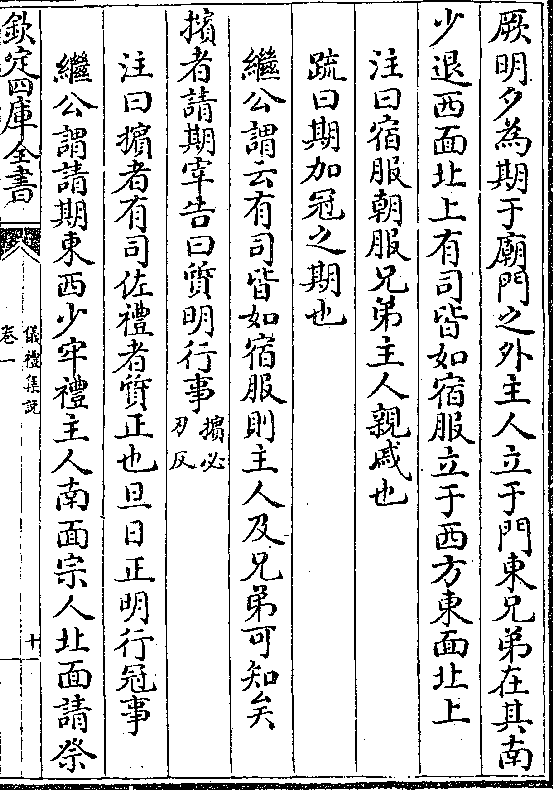 厥明夕為期于廟門之外主人立于門東兄弟在其南
少退西面北上有司皆如宿服立于西方東面北上
注曰宿服朝服兄弟主人親戚也
䟽曰期加冠之期也
繼公謂云有司皆如宿服則主人及兄弟可知矣
擯者請期宰告曰質明行事擯必刃反
注曰擯者有司佐禮者質正也旦日正明行冠事
繼公謂請期東西少牢禮主人南面宗人北面請祭
欽定四庫全書
儀禮集說
卷一
十